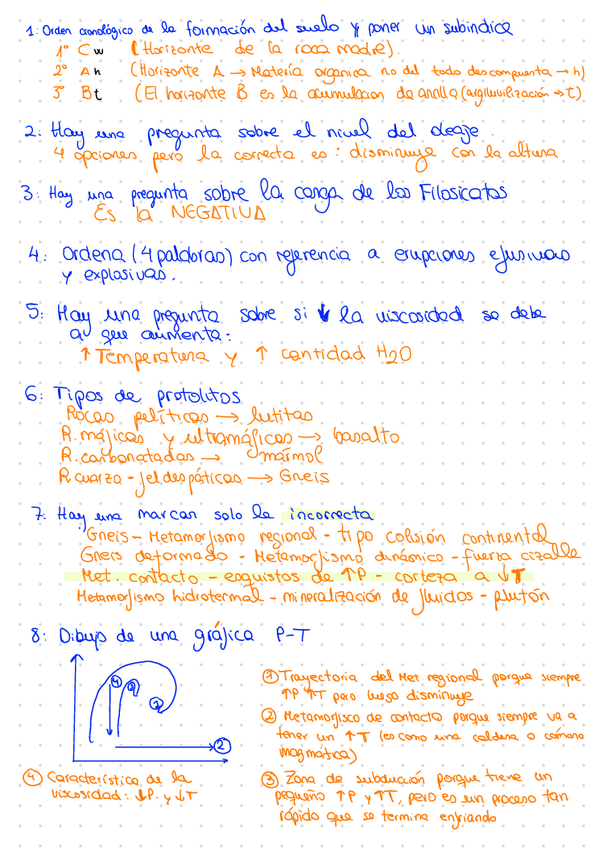 1. Orden cronológico de la formación del suelo y poner un subindice
1º Cw (Horizonte de la roca madre).
2º Ah (Horizonte A → Materia organica no del todo descompuesta → h)
3º Bt (El horizonte B es la acumulacion de arcilla (argiluvilización → t).
2: Hay una pregunta sobre el nivel del deaje.
4 opciones pero la correcta es: disminuye con la altura
3: Hay una pregunta sobre la carga de los Filosicatos
Es la NEGATIVA
4: Ordena (4 palabras) con referencia a erupciones efusivas
y explosivas.
5: Hay una pregunta sobre si ↓ la viscosidad se debe
a que aumenta:
↑ Temperatura y ↑ cantidad H2O
6: Tipos de protolitos
Rocas pelíticas → lutitas
R. máficas y ultramáficas → basalto
R. carbonatadas → marmol
R cuarzo-feldespáticas → Gneis
7. Hay una marcar solo la incorrecta
Gneis - Metamorfismo regional - tipo colisión continental
Gneis deformado - Metamorfismo dinámico - fuerza cizalle
Met. contacto - esquistos de ↑P - corteza a ↓T
Metamorfismo hidrotermal - mineralización de fluidos - plutón
8: Dibujo de una gráfica P-T
4 1 3
2
① Trayectoria del Met regional porque siempre
↑P ↑T pero luego disminuye
② Metamorfisco de contacto porque siempre va a
tener un ↑T (es como una caldera o cámara
magmática)
③ Zona de subducción porque tiene un
pequeño ↑P y ↑T, pero es un proceso tan
rápido que se termina enfriando
④ Característica de la
viscosidad: ↓P. y ↓T